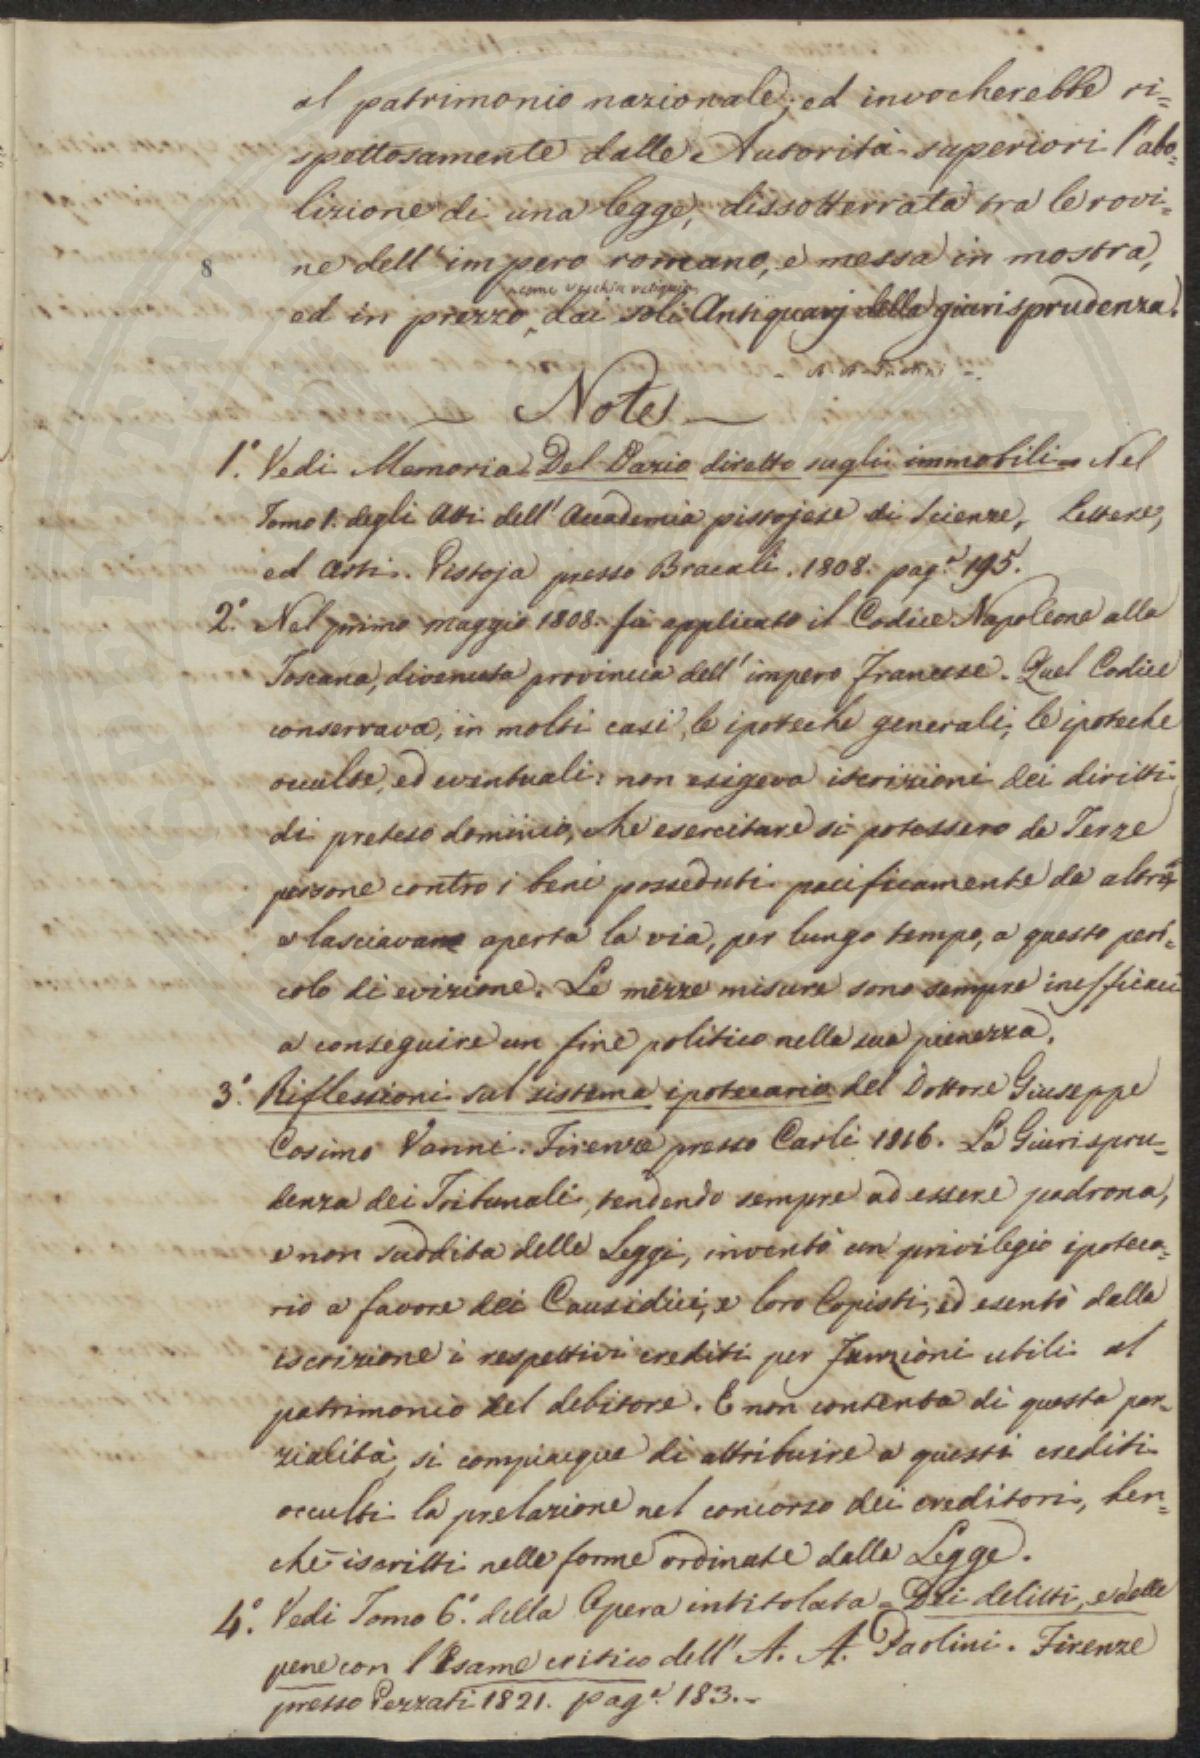 al patrimonio nazionale; ed invocherebbe ri=
spettosamente dalle Autorità superiori l'abo=
lizione di una legge, dissotterrata tra le rovi=
ne dell'impero romano, e messa in mostra,
8
come vecchia reliquia,
ed in prezzo dai soli Antiquarj della giurisprudenza.
Note
1.° Vedi Memoria Del Dazio diretto sugli immobili = Nel
Tomo 1. degli Atti dell'Accademia pistojese di Scienze, Lettere,
ed Arti. Pistoja presso Bracali. 1808. pag.ª 195.
2.° Nel primo maggio 1808. fù applicato il Codice Napoleone alla
Toscana, divenuta provincia dell'impero Francese. Quel Codice
conservava, in molti casi, le ipoteche generali, le ipoteche
occulte, ed eventuali: non esigeva iscrizioni dei diritti
di preteso dominio, che esercitare si potessero da Terze
persone contro i beni posseduti pacificamente da altri
e lasciavano aperta la via, per lungo tempo, a questo peri=
colo di evizione. Le mezze misure sono sempre inefficaci
a conseguire un fine politico nella sua pienezza.
3.° Riflessioni sul sistema ipotecario del Dottore Giuseppe
Cosimo Vanni. Firenze presso Carli 1816. La Giurispru=
denza dei Tribunali, tendendo sempre ad essere padrona,
e non suddita delle Leggi, inventò un privilegio ipoteca=
rio a favore dei Causidici, e loro Copisti, ed esentò dalla
iscrizione i respettivi crediti per funzioni utili al
patrimonio del debitore. E non contenta di questa par=
zialità, si compiacque di attribuire a questi crediti
occulti la prelazione nel concorso dei creditori, ben=
chè iscritti nelle forme ordinate dalla Legge.
4.° Vedi Tomo 6.° della Opera intitolata = Dei delitti, e delle
pene con l'Esame critico dell'A. A. Paolini. Firenze
presso Pezzati 1821. pag.ª 183.=